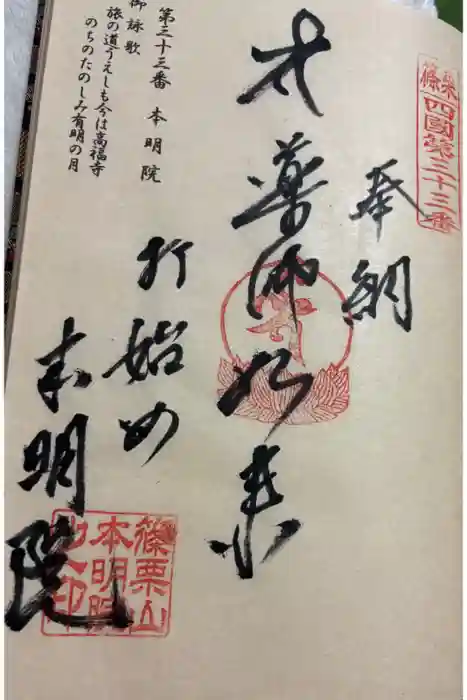 篠栗四國第三十三番
奉納
薬師如来
打始め
本明院
篠栗山
本明院
之印
第三十三番 本明院
御詠歌
旅の道うえしも今は高福寺
のちのたのしみ有明の月